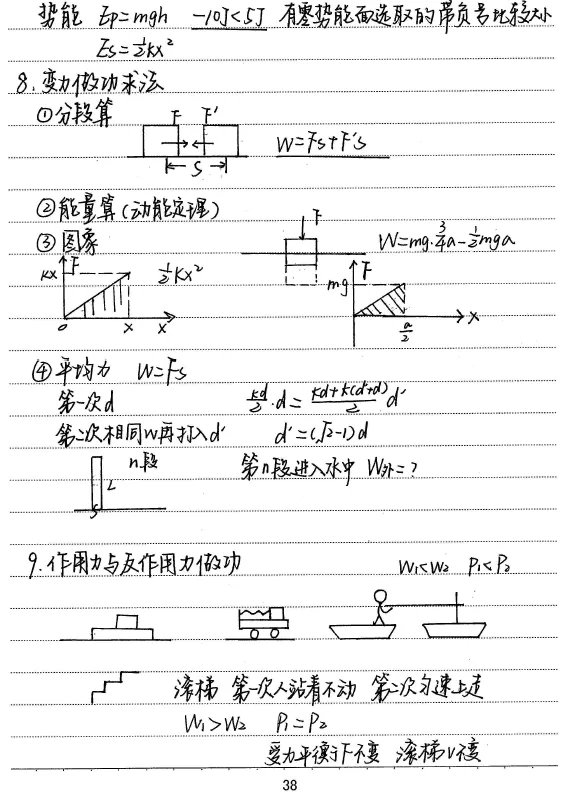 势能 Ep=mgh -10J<5J 有零势能面选取的带负号比较大小
Es=½kx²
8.变力做功求法
①分段算
F F′
S
W=Fs+F′s
②能量算(动能定理)
③图象
F
kx
½kx²
0 x x
F
W=mg·¾a-½mga
F
mg
a/2
x
④平均力 W=F̄s
第一次d kd/2·d=(kd+k(d′+d))/2 d′
第二次相同W再打入d′ d′=(√2-1)d
n段
L
S
第n段进入水中 W外=?
9.作用力与反作用力做功 W₁<W₂ P₁<P₂
滚梯 第一次人站着不动 第二次匀速上走
W₁>W₂ P₁=P₂
受力平衡→F不变 滚梯v不变
38